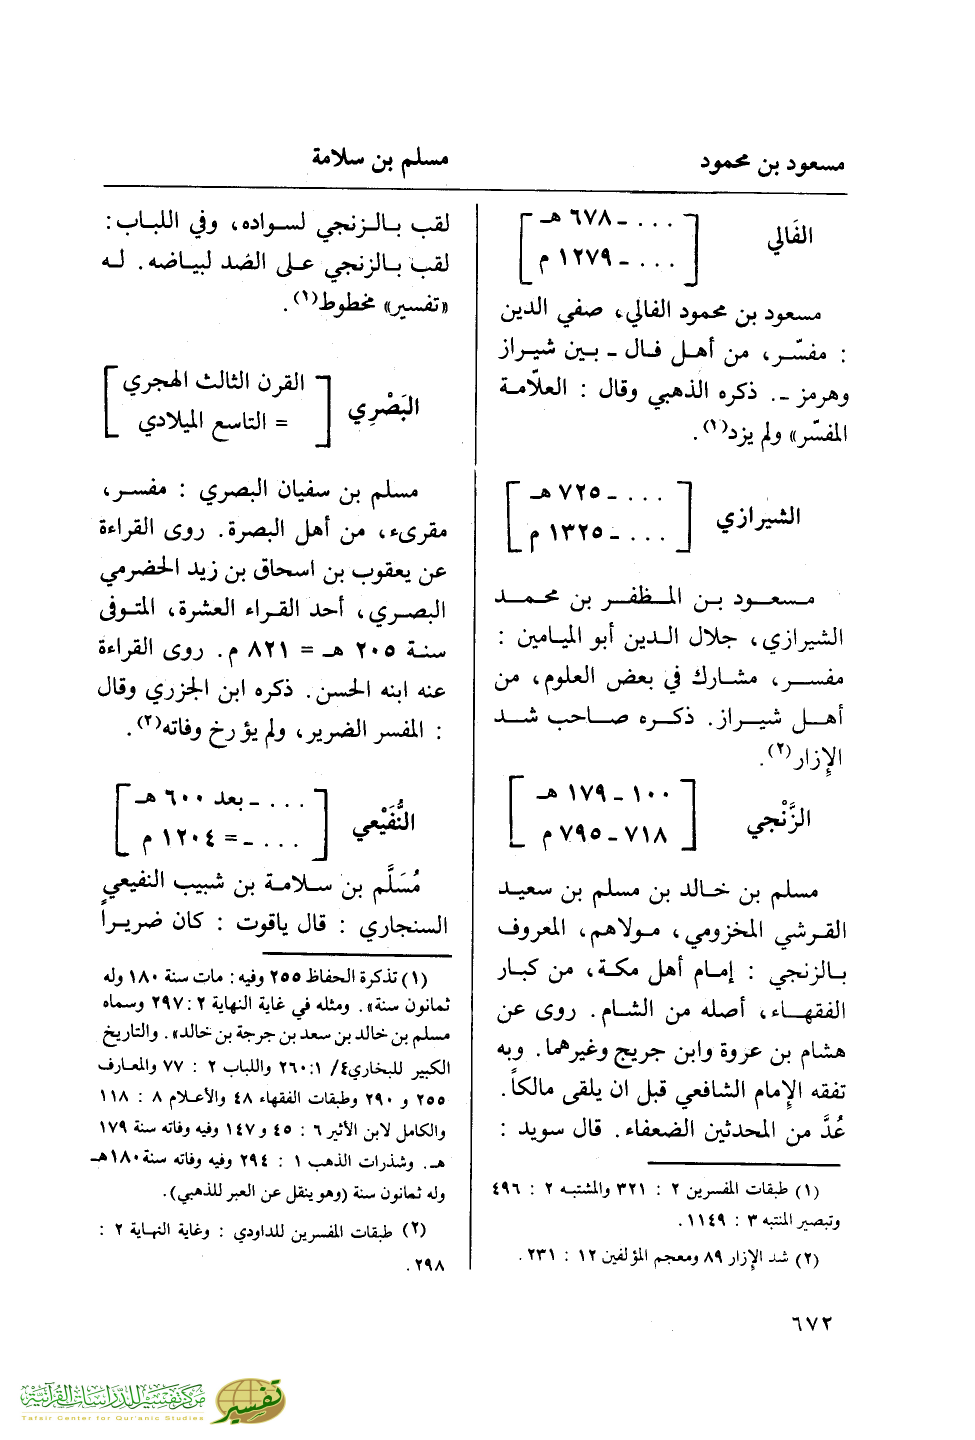 مسعود بن محمود
مسلم بن سلامة
الفَالي
[ . . . ـ ٦٧٨ هـ
. . . ـ ١٢٧٩ م ]
مسعود بن محمود الفالي، صفي الدين
: مفسّر، من أهل فال ـ بين شيراز
وهرمز ـ. ذكره الذهبي وقال : العلّامة
المفسّر» ولم يزد(١).
الشيرازي
[ . . . ـ ٧٢٥ هـ
. . . ـ ١٣٢٥ م ]
مسعود بن المظفر بن محمد
الشيرازي، جلال الدين أبو الميامين :
مفسر، مشارك في بعض العلوم، من
أهل شيراز. ذكره صاحب شد
الإزار(٢).
الزَّنْجي
[ ١٠٠ ـ ١٧٩ هـ
٧١٨ ـ ٧٩٥ م ]
مسلم بن خالد بن مسلم بن سعيد
القرشي المخزومي، مولاهم، المعروف
بالزنجي : إمام أهل مكة، من كبار
الفقهاء، أصله من الشام. روى عن
هشام بن عروة وابن جريج وغيرهما. وبه
تفقه الإمام الشافعي قبل ان يلقى مالكاً.
عُدَّ من المحدثين الضعفاء. قال سويد :
(١) طبقات المفسرين ٢ : ٣٢١ والمشتبه ٢ : ٤٩٦
وتبصير المنتبه ٣ : ١١٤٩.
(٢) شد الإزار ٨٩ ومعجم المؤلفين ١٢ : ٢٣١.
لقب بالزنجي لسواده، وفي اللباب :
لقب بالزنجي على الضد لبياضه. له
«تفسير» مخطوط(١).
البَصْرِي
[ القرن الثالث الهجري
= التاسع الميلادي ]
مسلم بن سفيان البصري : مفسر،
مقرىء، من أهل البصرة. روى القراءة
عن يعقوب بن اسحاق بن زيد الحضرمي
البصري، أحد القراء العشرة، المتوفى
سنة ٢٠٥ هـ = ٨٢١ م. روى القراءة
عنه ابنه الحسن. ذكره ابن الجزري وقال
: المفسر الضرير، ولم يؤرخ وفاته(٢).
النُّفَيْعي
[ . . . ـ بعد ٦٠٠ هـ
. . . ـ = ١٢٠٤ م ]
مُسَلَّم بن سلامة بن شبيب النفيعي
السنجاري : قال ياقوت : كان ضريراً
(١) تذكرة الحفاظ ٢٥٥ وفيه : مات سنة ١٨٠ وله
ثمانون سنة». ومثله في غاية النهاية ٢ : ٢٩٧ وسماه
مسلم بن خالد بن سعد بن جرجة بن خالد». والتاريخ
الكبير للبخاري ٤/ ١ : ٢٦٠ واللباب ٢ : ٧٧ والمعارف
٢٥٥ و ٢٩٠ وطبقات الفقهاء ٤٨ والأعلام ٨ : ١١٨
والكامل لابن الأثير ٦ : ٤٥ و ١٤٧ وفيه وفاته سنة ١٧٩
هـ. وشذرات الذهب ١ : ٢٩٤ وفيه وفاته سنة ١٨٠ هـ
وله ثمانون سنة (وهو ينقل عن العبر للذهبي).
(٢) طبقات المفسرين للداودي : وغاية النهاية ٢ :
٢٩٨.
٦٧٢
مركز تفسير للدراسات القرآنية
Tafsir Center for Qur'anic Studies
تفسير